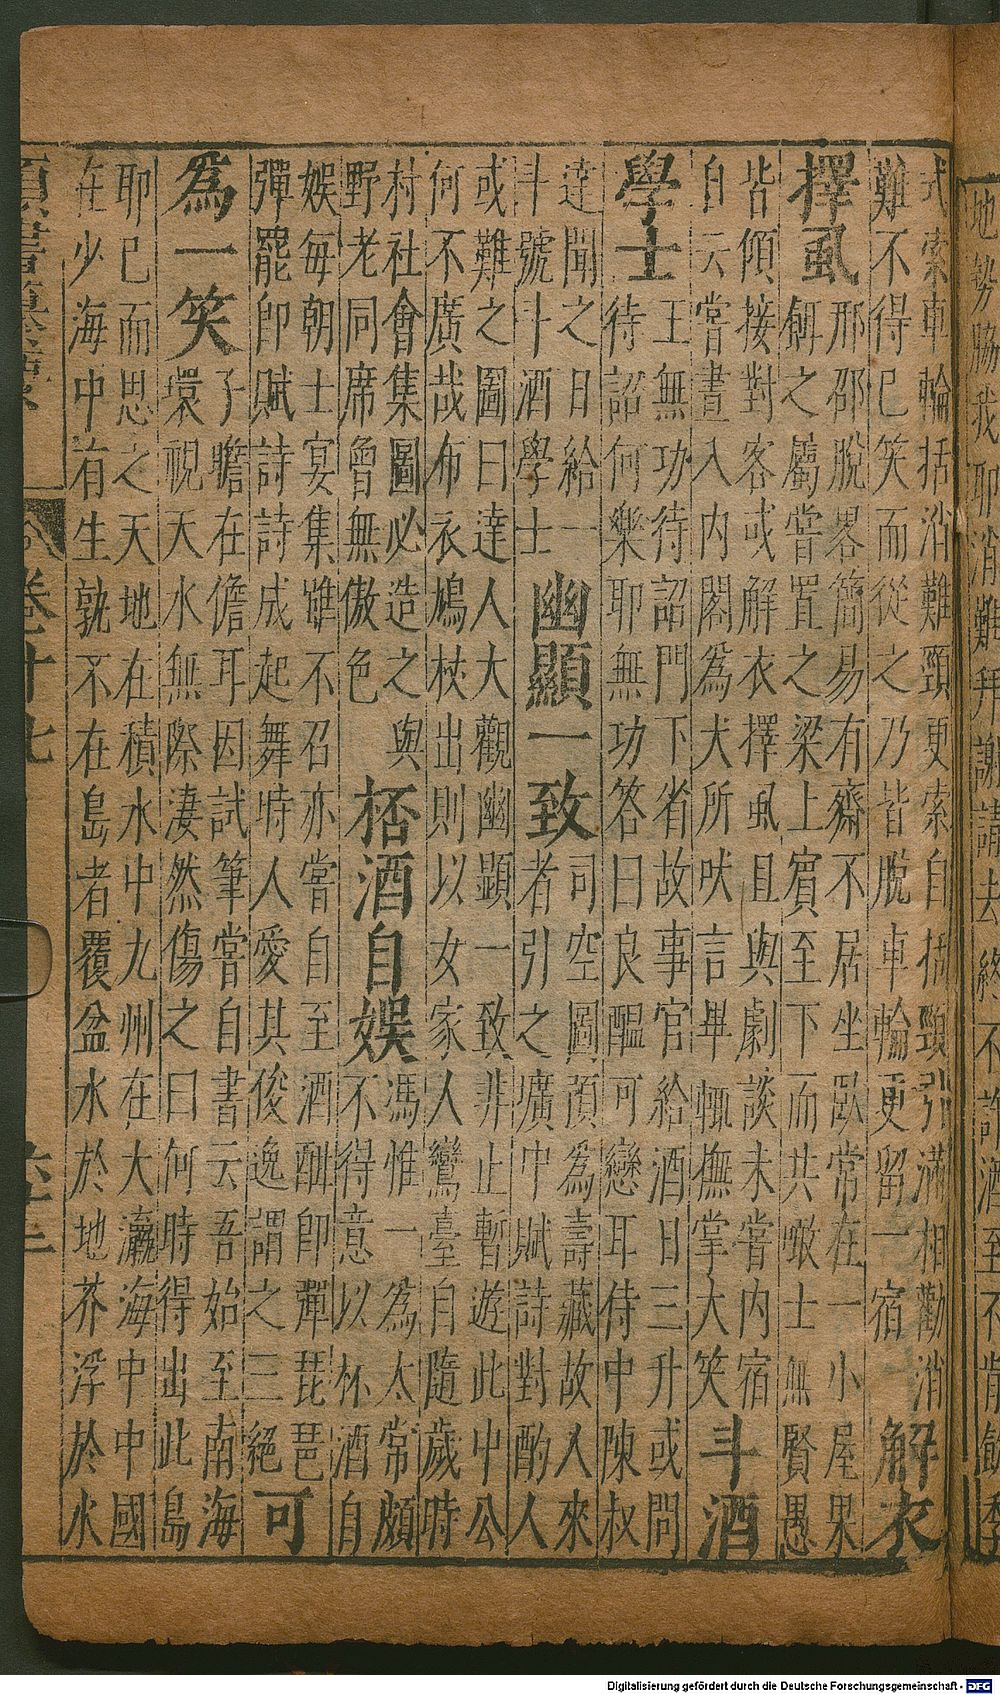 地勢脇我耶消難拜謝請去終不許酒至不肯飲季
式索車輪括消難頸更索自括頸引滿相勸消
難不得已笑而從之乃皆脫車輪更留一宿
解衣
擇虱
邢邵脫畧簡易有齋不居坐臥常在一小屋果
餌之屬嘗置之梁上賓至下而共噉士無賢愚
皆傾接對客或解衣擇虱且與劇談未嘗內宿
自云嘗晝入內閤爲犬所吠言畢輒撫掌大笑
斗酒
學士
王無功待詔門下省故事官給酒日三升或問
待詔何樂耶無功答曰良醞可戀耳侍中陳叔
達聞之日給一
斗號斗酒學士
幽顯一致
司空圖預爲壽藏故人來
者引之壙中賦詩對酌人
或難之圖曰達人大觀幽顯一致非止暫遊此中公
何不廣哉布衣鳩杖出則以女家人鸞臺自隨歲時
村社會集圖必造之與
野老同席曾無傲色
桮酒自娛
馮惟一爲太常頗
不得意以杯酒自
娛每朝士宴集雖不召亦嘗自至酒酣即彈琵琶
彈罷即賦詩詩成起舞時人愛其俊逸謂之三絕
可
爲一笑
子瞻在儋耳因試筆嘗自書云吾始至南海
環視天水無際淒然傷之曰何時得出此島
耶已而思之天地在積水中九州在大瀛海中中國
在少海中有生孰不在島者覆盆水於地芥浮於水
卷十七
Digitalisierung gefördert durch die Deutsche Forschungsgemeinschaft - DFG